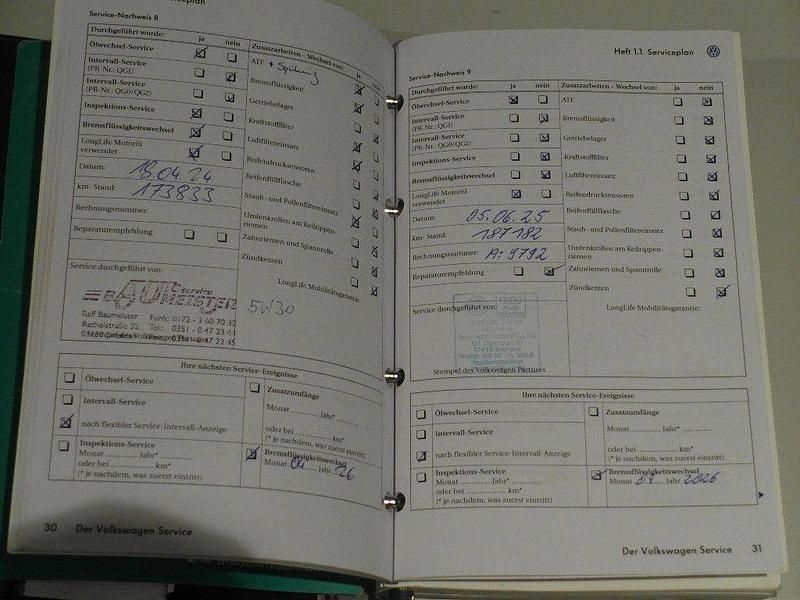 Serviceplan
Service-Nachweis 8
Durchgeführt wurde: ja nein
Ölwechsel-Service
Intervall-Service
(PR-Nr.: QG1)
Intervall-Service
(PR-Nr.: QG0/QG2)
Inspektions-Service
Bremsflüssigkeitswechsel
LongLife Motoröl
verwendet
Datum: 18 04 24
km- Stand: 173833
Rechnungsnummer:
Reparaturempfehlung
Zusatzarbeiten - Wechsel von: ja nein
ATF + Spülung
Bremsflüssigkeit
Getriebelager
Kraftstofffilter
Luftfiltereinsatz
Reifendrucksensoren
Reifenfüllflasche
Staub- und Pollenfiltereinsatz
Umlenkrollen am Keilrippen-
riemen
Zahnriemen und Spannrolle
Zündkerzen
LongLife Mobilitätsgarantie:
Service durchgeführt von:
service
BAUMEISTER
5W30
Ralf Baumeister Funk: 0172 - 3 60 70 32
Reckestraße 32 Tel.: 0351 - 8 47 23 44
Ihre nächsten Service-Ereignisse
Ölwechsel-Service
Intervall-Service
nach flexibler Service-Intervall-Anzeige
Inspektions-Service
Monat ............ Jahr*............
oder bei ........................ km*
(* je nachdem, was zuerst eintritt)
Zusatzumfänge
Monat ............ Jahr*............
oder bei ........................ km*
(* je nachdem, was zuerst eintritt)
Bremsflüssigkeitswechsel
Monat 04 Jahr 26
30 Der Volkswagen Service
Heft 1.1 Serviceplan
Service-Nachweis 9
Durchgeführt wurde: ja nein
Ölwechsel-Service
Intervall-Service
(PR-Nr.: QG1)
Intervall-Service
(PR-Nr.: QG0/QG2)
Inspektions-Service
Bremsflüssigkeitswechsel
LongLife Motoröl
verwendet
Datum: 05.06.25
km- Stand: 187182
Rechnungsnummer: A: 9792
Reparaturempfehlung
Zusatzarbeiten - Wechsel von: ja nein
ATF
Bremsflüssigkeit
Getriebelager
Kraftstofffilter
Luftfiltereinsatz
Reifendrucksensoren
Reifenfüllflasche
Staub- und Pollenfiltereinsatz
Umlenkrollen am Keilrippen-
riemen
Zahnriemen und Spannrolle
Zündkerzen
LongLife Mobilitätsgarantie:
Service durchgeführt von:
Stempel des Volkswagen Partners
Ihre nächsten Service-Ereignisse
Ölwechsel-Service
Intervall-Service
nach flexibler Service-Intervall-Anzeige
Inspektions-Service
Monat ............ Jahr*............
oder bei ........................ km*
(* je nachdem, was zuerst eintritt)
Zusatzumfänge
Monat ............ Jahr*............
oder bei ........................ km*
(* je nachdem, was zuerst eintritt)
Bremsflüssigkeitswechsel
Monat 04 Jahr 2026
Der Volkswagen Service 31